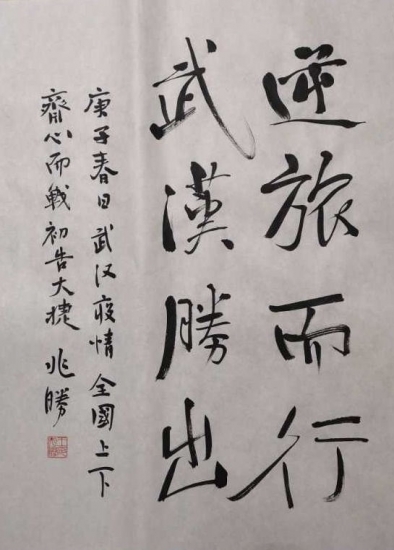 逆旅而行
武漢勝出
庚子春日武汉疫情全國上下
齊心而戰初告大捷 兆勝